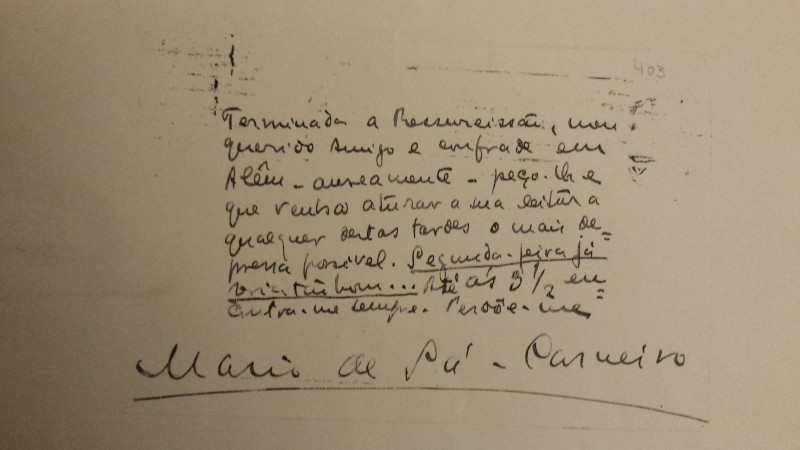 403
Terminada a Ressureissão, meu
querido Amigo e confrade em
Alêm - aureamente - peço-lhe
que venha aturar a ma leitura
qualquer destas tardes o mais de=
pressa possivel. Segunda-feira já
seria tão bom... Até ás 3 1/2 en=
contra-me sempre. Perdôe-me
Mario de Sá-Carneiro